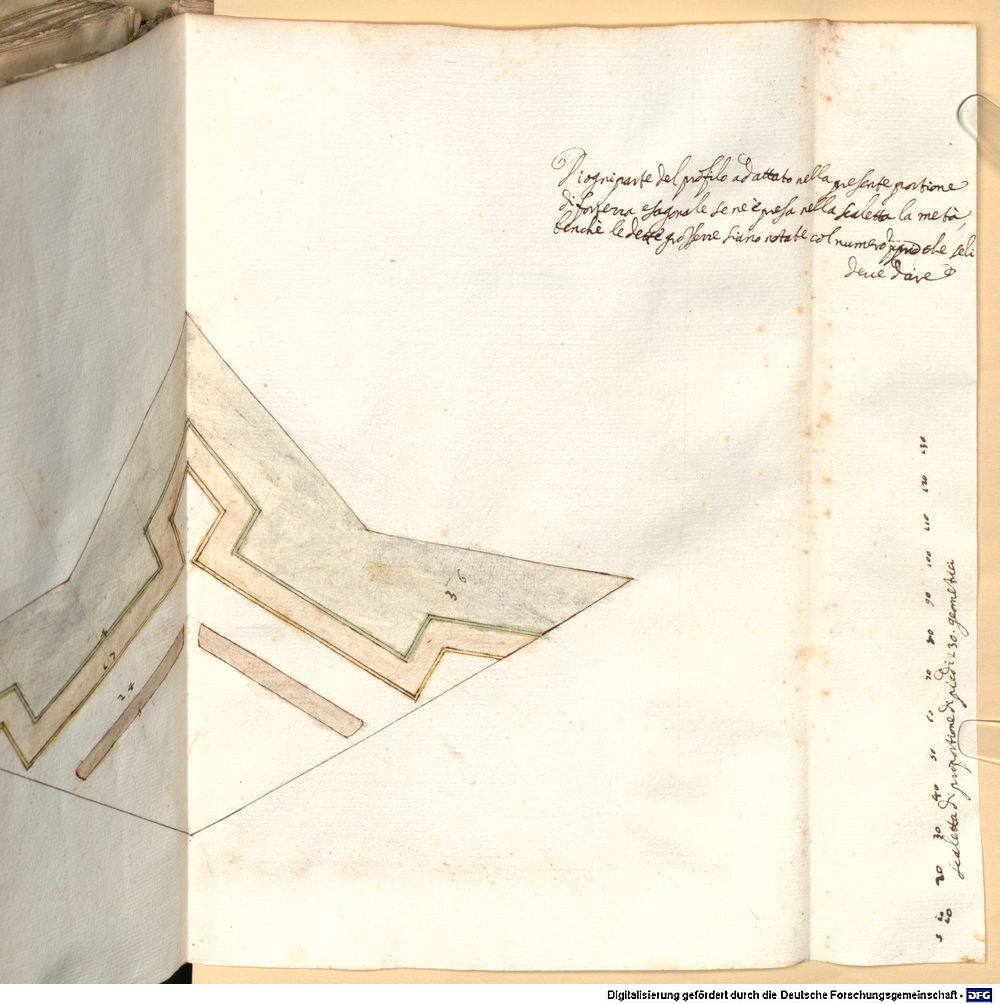 Di ogni parte del profilo adattato nella presente portione
di fortezza esagonale se ne è presa nella scaletta la metà,
benchè le dette grossezze siano notate col numero che seli
deue dare
36
4
67
24
5 10 20 20 30 40 50 60 70 80 90 100 110 120 130
scaletta di proportione di piedi 130. geometrici
Digitalisierung gefördert durch die Deutsche Forschungsgemeinschaft - DFG